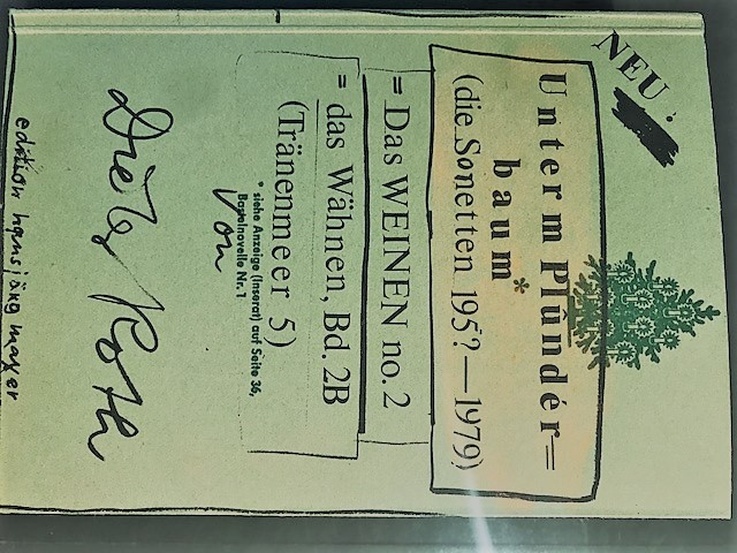 NEU!
Unterm Plûndér=
baum*
(die Sonetten 195?—1979)
= Das WEINEN no. 2
= das Wähnen, Bd. 2B
(Tränenmeer 5)
* siehe Anzeige (Inserat) auf Seite 36,
Bastelnovelle Nr. 1
von
Dieter Roth
edition hansjörg mayer